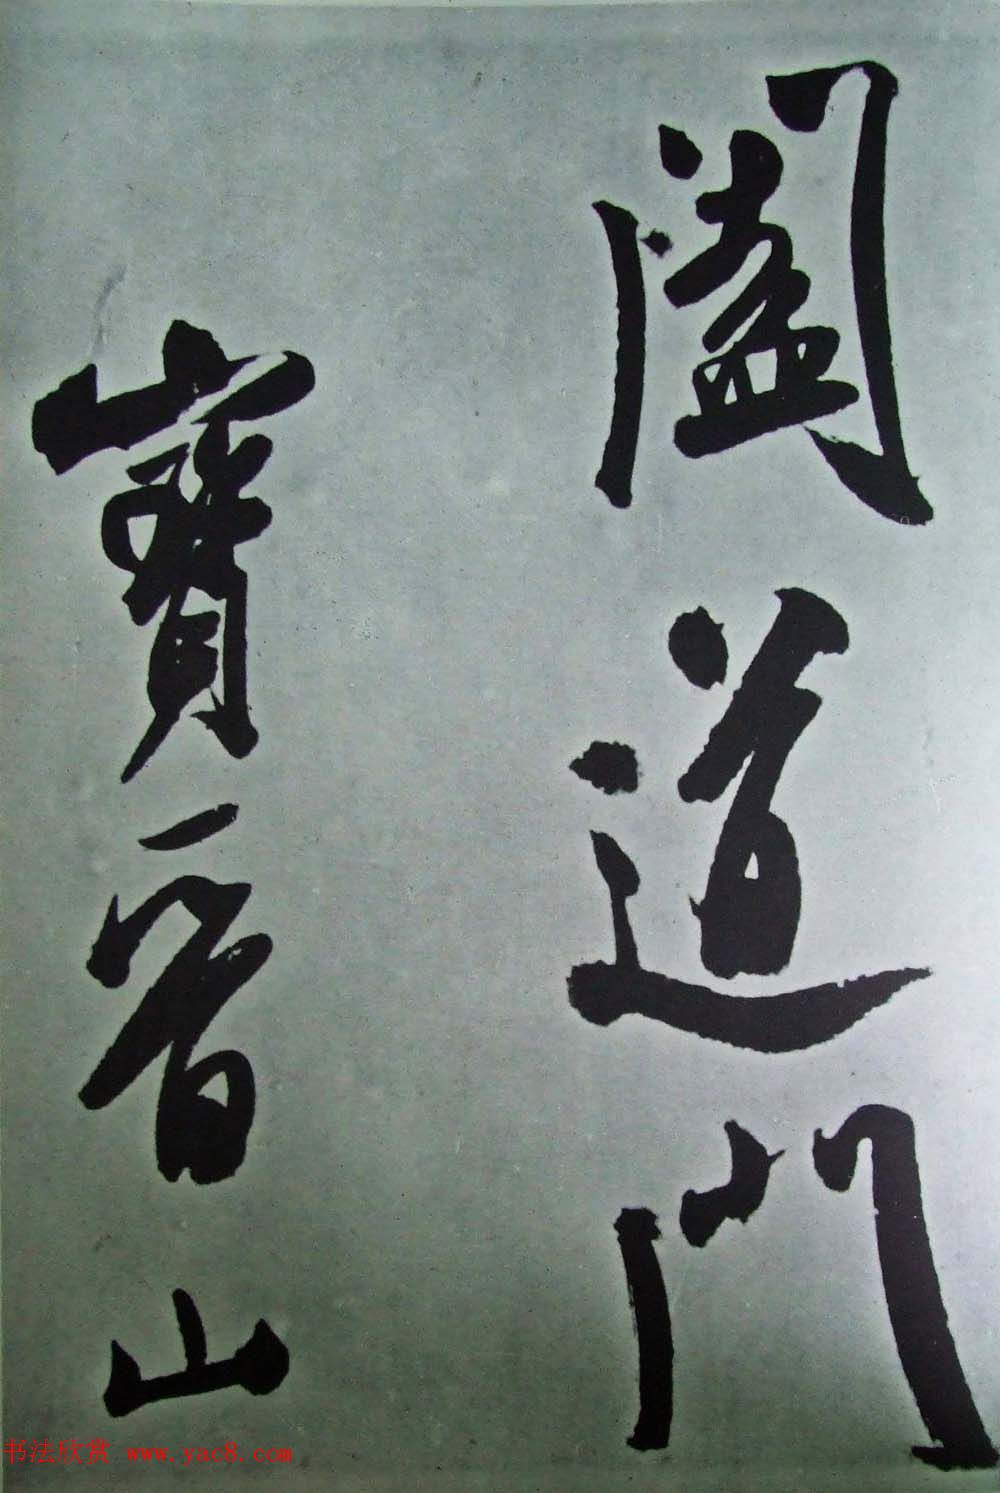 闔道門
寶晉山
书法欣赏 www.yac8.com